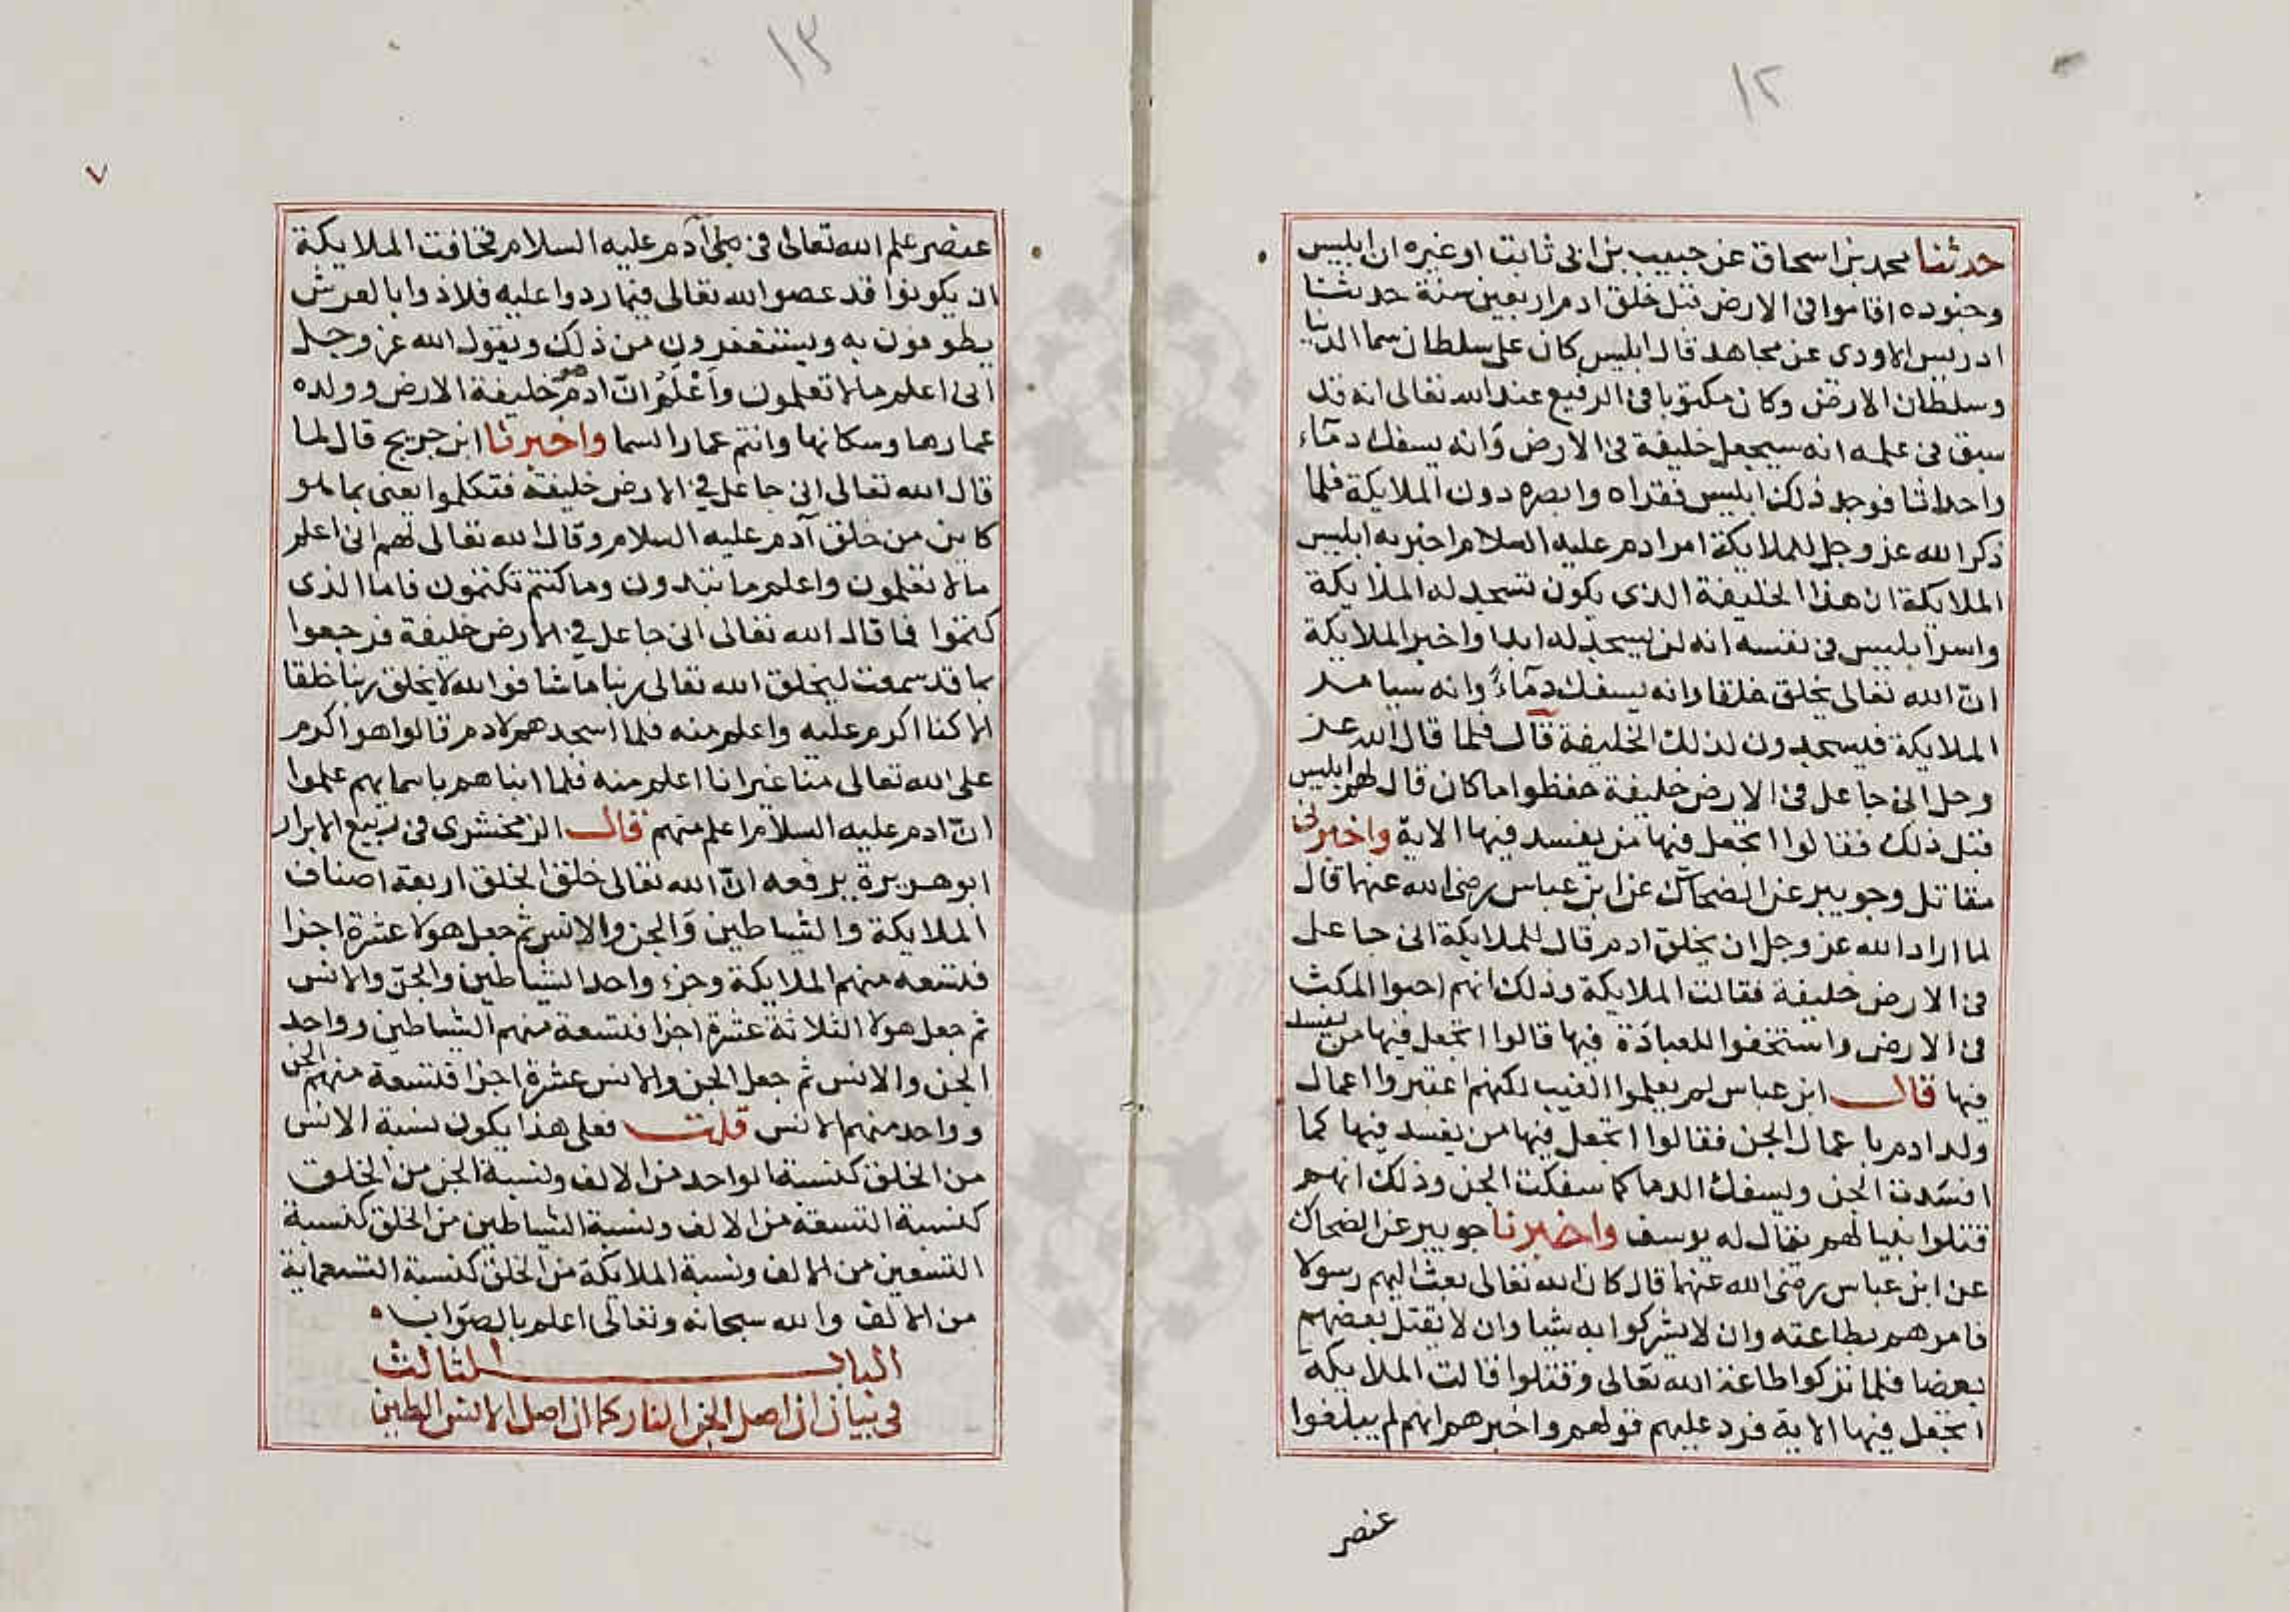 ١٢
حدثنا محمد بن اسحاق عن حبيب بن ابى ثابت او غيره ان ابليس
وجنوده اقاموا فى الارض قبل خلق ادم اربعين سنة حدثنا
ادريس الاودى عن مجاهد قال ابليس كان على سلطان سما الدنيا
وسلطان الارض وكان مكتوبا فى الرفيع عند الله تعالى انه قد
سبق فى علمه انه سيجعل خليفة فى الارض وانه يسفك دماء
واحداثا فوجد ذلك ابليس فقراه وابصره دون الملايكة فلما
ذكر الله عز وجل للملايكة امر ادم عليه السلام اخبر به ابليس
الملايكة ان هذا الخليفة الذى يكون تسجد له الملايكة
واسر ابليس فى نفسه انه لن يسجد له ابدا واخبر الملايكة
انّ الله تعالى يخلق خلقا وانه يسفك دماءً وانه سيامر
الملايكة فيسجدون لذلك الخليفة قال فلما قال الله عز
وجل انى جاعل فى الارض خليفة حفظوا ما كان قال لهم ابليس
قبل ذلك فقالوا اتجعل فيها من يفسد فيها الاية واخبرنى
مقاتل وجويبر عن الضحاك عن ابن عباس رضى الله عنهما قال
لما اراد الله عز وجل ان يخلق ادم قال للملايكة انى جاعل
فى الارض خليفة فقالت الملايكة وذلك انهم احبوا المكث
فى الارض واستخفوا للعبادة فيها قالوا اتجعل فيها من يفسد
فيها قال ابن عباس لم يعلموا الغيب لكنهم اعتبروا اعمال
ولد ادم باعمال الجن فقالوا اتجعل فيها من يفسد فيها كما
افسدت الجن ويسفك الدما كما سفكت الجن وذلك انهم
قتلوا نبيا لهم يقال له يوسف واخبرنا جويبر عن الضحاك
عن ابن عباس رضى الله عنهما قال كان الله تعالى بعث اليهم رسولا
فامرهم بطاعته وان لا يشركوا به شيا وان لا يقتل بعضهم
بعضا فلما تركوا طاعة الله تعالى وقتلوا قالت الملايكة
اتجعل فيها الاية فرد عليهم قولهم واخبرهم انهم لم يبلغوا
عنصر
١٣
٧
عنصر علم الله تعالى فى آدم عليه السلام فخافت الملايكة
ان يكونوا قد عصوا الله تعالى فيما ردوا عليه فلاذوا بالعرش
يطوفون به ويستغفرون من ذلك ويقول الله عز وجل
انى اعلم ما لا تعلمون وأعْلَمُ انّ ادم هو خليفة الارض وولده
عمارها وسكانها وانتم عمار السما واخبرنا ابن جريج قال لما
قال الله تعالى انى جاعل فى الارض خليفة فتكلموا يعنى بما هو
كاين من خلق آدم عليه السلام وقال الله تعالى لهم انى اعلم
ما لا تعلمون واعلم ما تبدون وما كنتم تكتمون فاما الذى
كتموا فما قال الله تعالى انى جاعل فى الارض خليفة فرجعوا
بما قد سمعت ليخلق الله تعالى ربنا ما شا فوالله لا يخلق ربنا خلقا
الا كنا اكرم عليه واعلم منه فلما اسجدهم لادم قالوا هو اكرم
على الله تعالى منا غير انا اعلم منه فلما انباهم باسمايهم علموا
انّ ادم عليه السلام اعلم منهم قال الزمخشرى فى ربيع الابرار
ابو هريرة يرفعه انّ الله تعالى خلق الخلق اربعة اصناف
الملايكة والشياطين والجن والانس ثم جعل هولا عشرة اجزا
فتسعه منهم الملايكة وجزء واحد الشياطين والجنّ والانس
ثم جعل هولا الثلاثة عشرة اجزا فتسعة منهم الشياطين وواحد
الجن والانس ثم جعل الجن والانس عشرة اجزا فتسعة منهم الجن
وواحد منهم الانس قلت فعلى هذا يكون نسبة الانس
من الخلق كنسبة الواحد من الالف ونسبة الجن من الخلق
كنسبة التسعة من الالف ونسبة الشياطين من الخلق كنسبة
التسعين من الالف ونسبة الملايكة من الخلق كنسبة التسعماية
من الالف والله سبحانه وتعالى اعلم بالصواب
الباب الثالث
فى بيان ان اصل الجن النار كما ان اصل الانس الطين